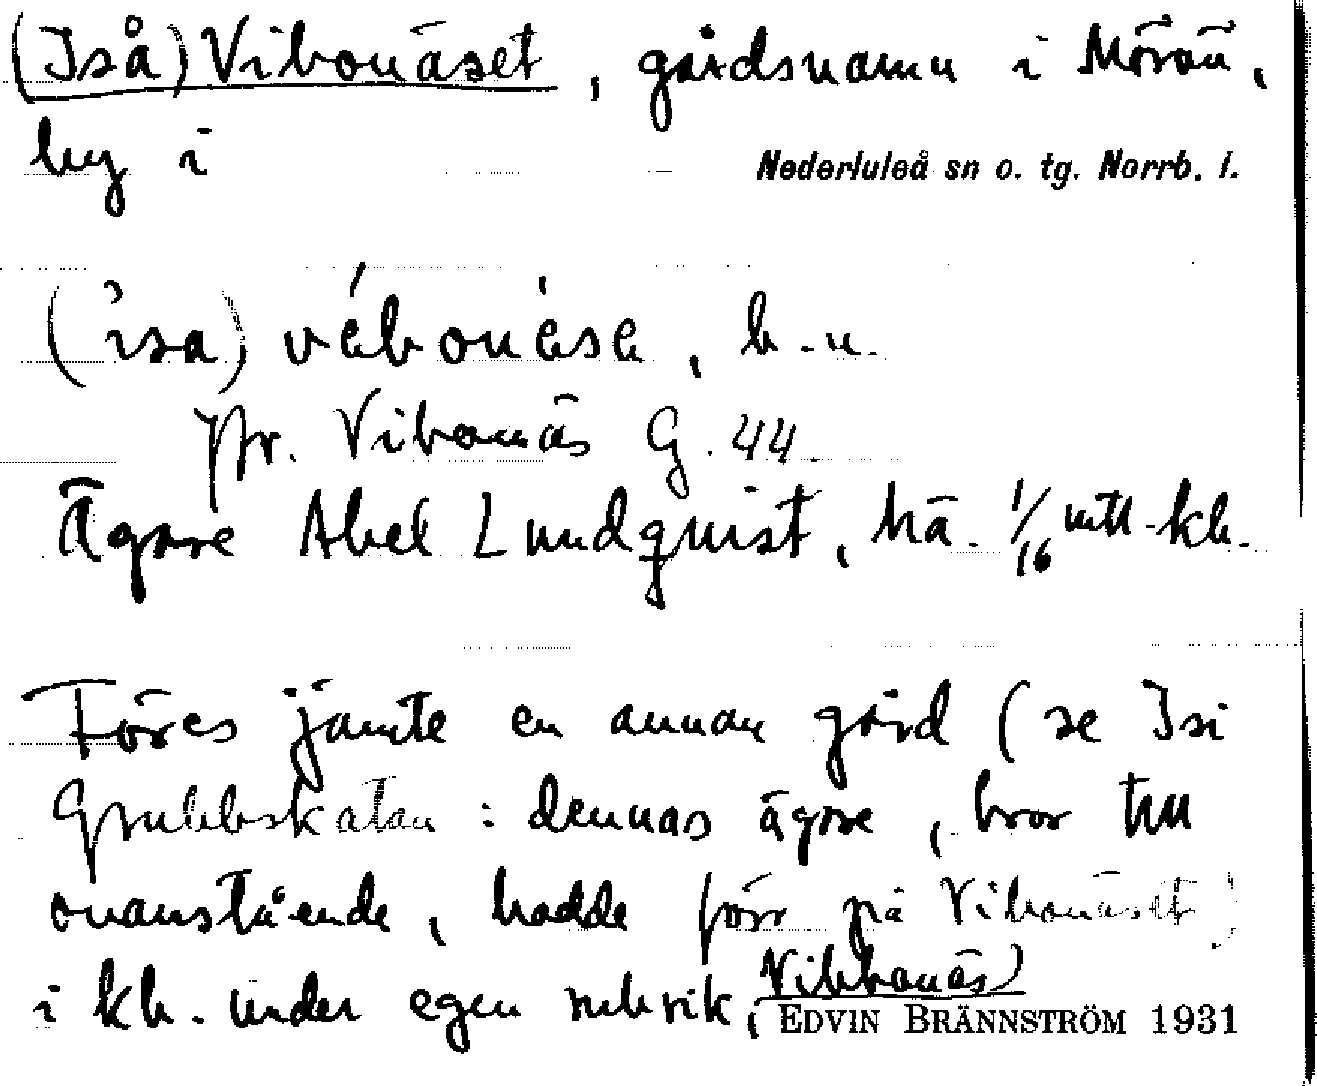 (Iså) Vibonäset, gårdsnamn i Mörön,
by i Nederluleå sn o. tg. Norrb. l.
(ìsa) vébonèse, b.-n.
Jfr. Vibonäs G. 44.
Ägare Abel Lundquist, hä. 1/16 mtl - kb.
Föres jämte en annan gård (se Isi
Grubbskatan: dennas ägare, bror till
ovanstående, hadde förr på Vibonäset)
i kb. under egen rubrik, Vibbonäs)
EDVIN BRÄNNSTRÖM 1931